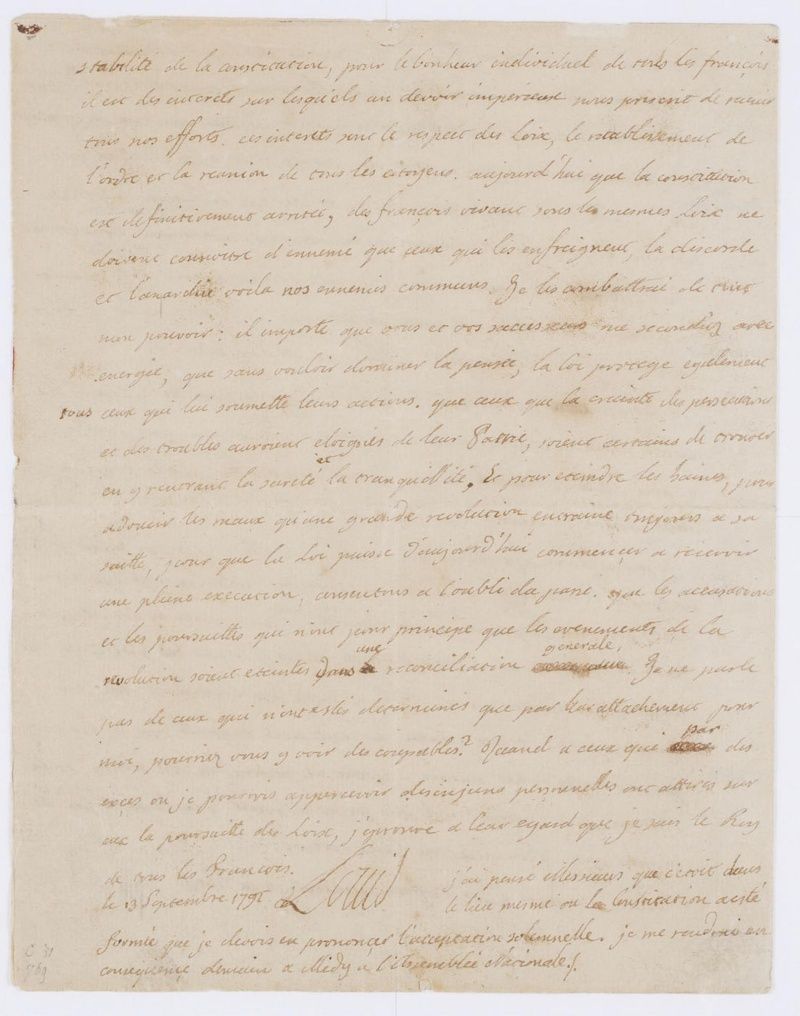 stabilité de la constitution, pour le bonheur individuel de tous les françois
il est des interets sur lesquels un devoir imperieux nous prescrit de reunir
tous nos efforts. ces interets sont le respect des loix, le retablissement de
l'ordre et la reunion de tous les citoyens. aujourd'hui que la constitution
est definitivement arretée, des françois vivant sous les mesmes loix ne
doivent connoitre d'ennemi que ceux qui les enfreignent, la discorde
et l'anarchie voila nos ennemis communs. Je les combattrai de tout
mon pouvoir: il importe que vous et vos successeurs me secondiez avec
energie, que sans vouloir dominer la pensée, la loi protege egalement
tous ceux qui lui soumette leurs actions. que ceux que la crainte des persecutions
et des troubles auroient eloignés de leur Patrie, soient certains de trouver
en y rentrant la sureté et la tranquillité. Et pour eteindre les haines, pour
adoucir les maux qu'une grande revolution entraine toujours a sa
suitte, pour que la loi puisse d'aujourd'hui commencer a recevoir
une pleine execution, consentons a l'oubli du passé. que les accusations
et les poursuittes qui n'ont pour principe que les evenements de la
revolution soient eteintes dans une reconciliation generale. Je ne parle
pas de ceux qui n'ont estés determinés que par leur attachement pour
moi, pourriez vous y voir des coupables? Quand a ceux qui par des
excès ou je pourrois appercevoir des injures personnelles ont attirés sur
eux la poursuitte des loix, j'eprouve a leur egard que je suis le Roy
de tous les François.
le 13 Septembre 1791 Louis
j'ai pensé Messieurs que c'etoit dans
le lieu mesme ou la Constitution a esté
formée que je devois en prononcer l'acceptation solemnelle. je me rendrai en
consequence demain a Midy a l'Assemblée Nationale.
C 31